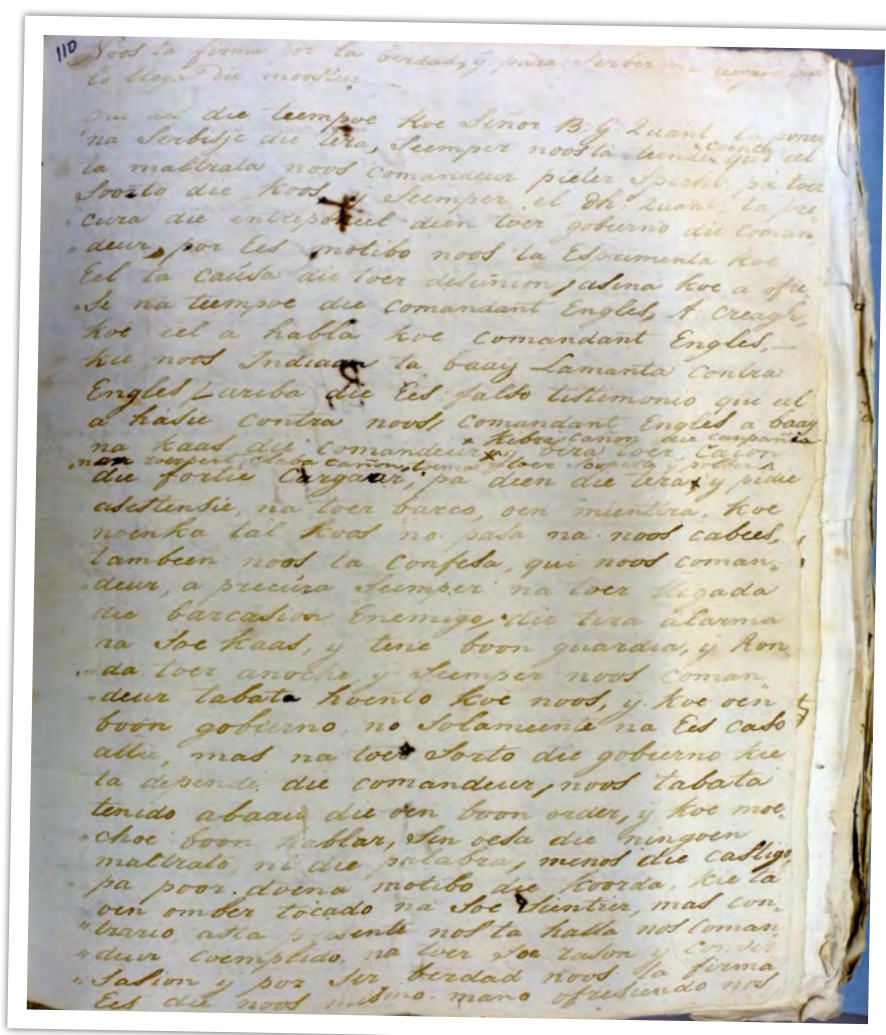 110
Noos ta firma por la berdad, y para Serbir
die mooster
die teempoe koe Señor B. G. Quant, ta poner
na Serbisje die tera, Seemper noos ta teende cuenta qui eel
ta maltrata noos Comandeur pieter Specht, pa toer
Soorto die koos, Seemper el Dhº Quant, ta pre-
cura die entreponeel dien toer gobierno die Coman
"deur, por Ees motibo noos ta Esprementa koe
Eel ta causa die toer disunion, asina koe a ofre-
"se na teempoe die Comandant Engles, A. Creagh,
koe eel a habla koe Comandant Engles,
kie noos Indiaan ta baay Lamanta Contra
Engles, ariba die Ees falso testimonio qui el
a hasie Contra noos, Comandant Engles a baay
na kaas die Comandeur, kibra cañon die canpañia
y vira toer Cañon
die fortie Cargaar, pa dien die tera, y pidie
asistensie, na toer barco, oen mientira, koe
noenka tal koos no pasa na noos cabees,
tambeen noos ta Confesa, qui noos Coman,
"deur, a precura Seemper na toer lligada
die barcasion Enemigo, die tira alarma
na Soe kaas, y tene boon guardia, y Ron,
"da toer anoche, y Seemper noos Coman
"deur tabata hoento koe noos, y koe oen
boon gobierno, no Solameente na Ees caso
allie, mas na toer Sorto die gobierno kie
ta depende die Comandeur, noos tabata
tenido abaau die oen boon order, y koe moe
"choe boon hablar, Sin oesa die ningoen
maltrato, ni die palabra, menos die castigo,
pa poor doena motibo die koorda, kie ta
oen omber tocado na Soe Sientier, mas con,
"trario, asta presente nos ta halla nos Coman
"deur Coemplido na toer Soe rason y Conver
"Sasion y por Ser berdad noos ta firma
Ees die noos mismo mano ofresiendo nos